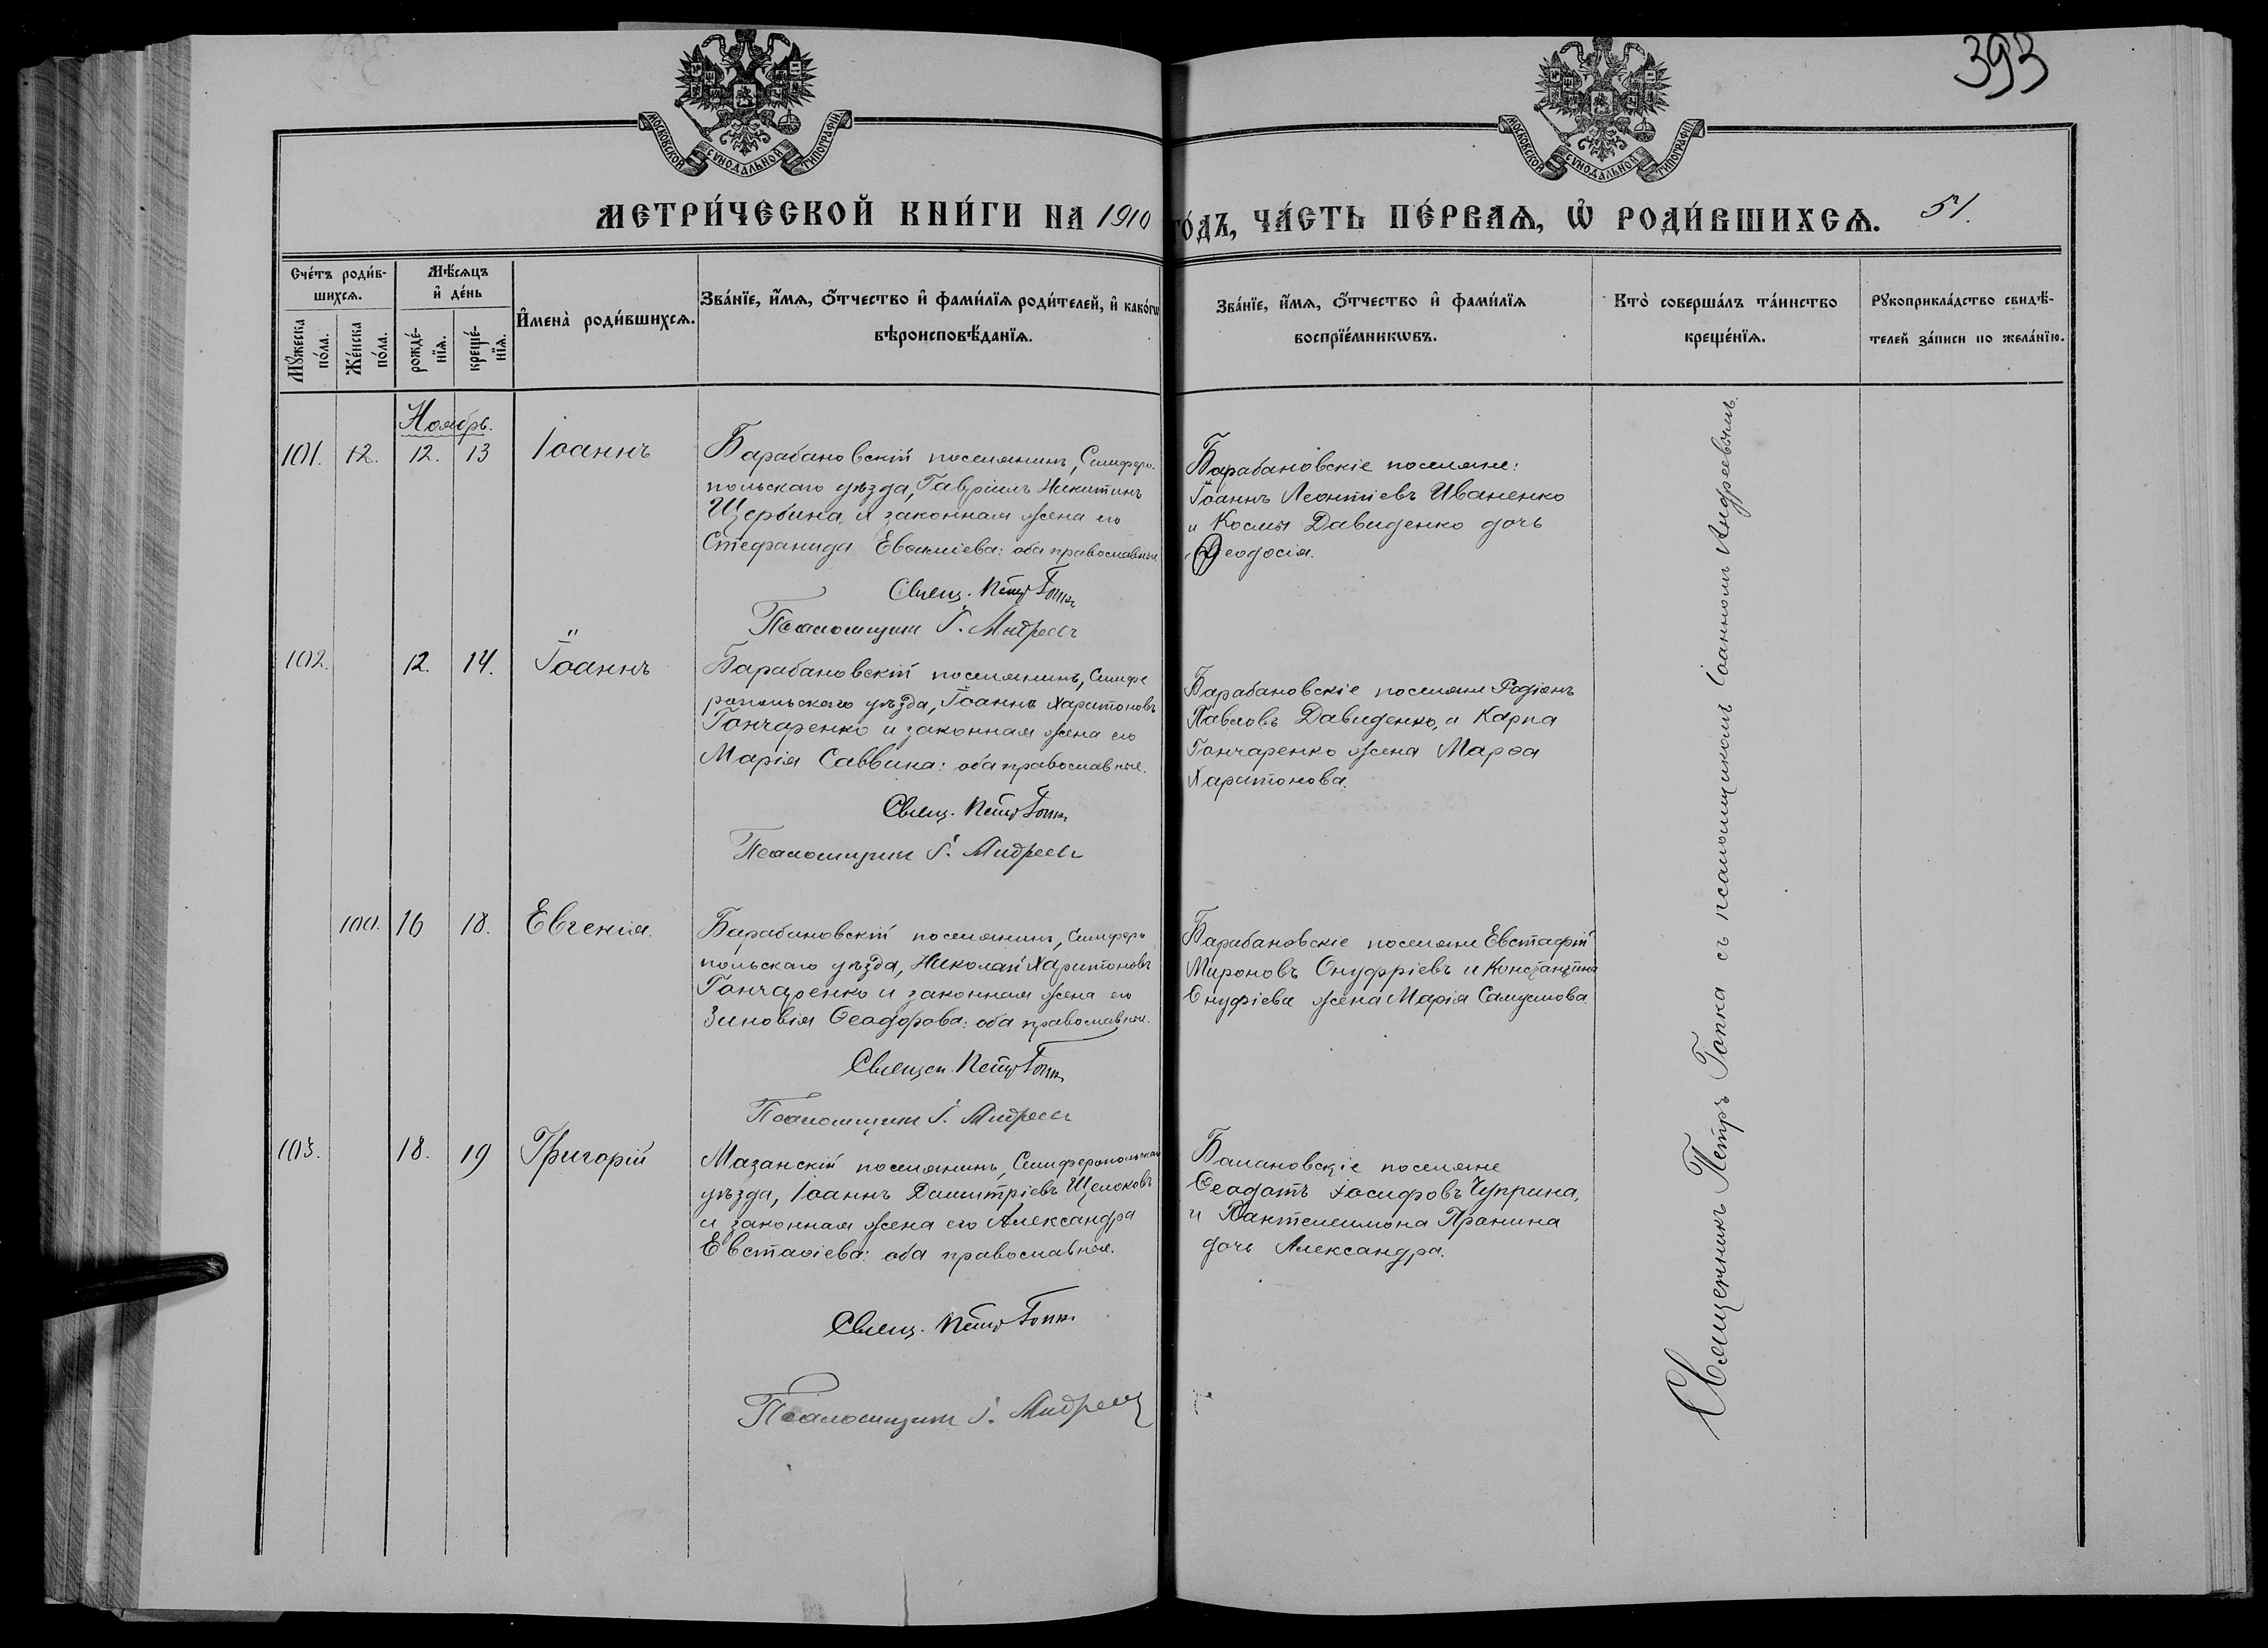 393
МОСКОВСКОЙ СѴНОДАЛЬНОЙ ТИПОГРАФІИ
МОСКОВСКОЙ СѴНОДАЛЬНОЙ ТИПОГРАФІИ
МЕТРИ́ЧЕСКОЙ КНИ́ГИ НА 1910 ГО́ДЪ, ЧА́СТЬ ПЕ́РВАѦ, Ѡ҆ РОДИ́ВШИХСѦ. 51.
Сче́тъ роди́в-
шихсѧ.
Мꙋ́жеска
по́ла.
Же́нска
по́ла.
Мѣ́сѧцъ
и҆ де́нь
рожде́-
нїѧ.
креще́-
нїѧ.
И҆мена̀ роди́вшихсѧ.
Зва́нїе, и҆́мѧ, ѻ҆́тчество и҆ фами́лїѧ роди́телей, и҆ како́гѡ
вѣроисповѣ́данїѧ.
Зва́нїе, и҆́мѧ, ѻ҆́тчество и҆ фами́лїѧ
воспрїе́мникѡвъ.
Кто̀ соверша́лъ та́инство
креще́нїѧ.
Рꙋкоприкла́дство свидѣ́-
телей за́писи по жела́нїю.
Ноябрь.
101. 12. 12. 13 Іоаннъ
Барабановскій поселянинъ, Симферо-
польскаго уѣзда, Гавріилъ Никитинъ
Щербина и законная жена его
Стефанида Евѳиміева: оба православные
Свящ. Петръ Гопка
Псаломщикъ І. Андреевъ
Барабановскіе поселяне:
Іоаннъ Леонтіевъ Иваненко
и Космы Давиденко дочь
Ѳеодосія.
102. 12. 14. Іоаннъ
Барабановскій поселянинъ, Симфе
ропольскаго уѣзда, Іоаннъ Харитоновъ
Гончаренко и законная жена его
Марія Саввина: оба православные.
Свящ. Петръ Гопка
Псаломщикъ І. Андреевъ
Барабановскіе поселяне Родіонъ
Павловъ Давиденко, и Карпа
Гончаренко жена Марѳа
Харитонова.
100. 16 18. Евгенія.
Барабановскій поселянинъ, Симферо
польскаго уѣзда, Николай Харитоновъ
Гончаренко и законная жена его
Зиновія Ѳеодорова: оба православные.
Священ. Петръ Гопка
Псаломщикъ І. Андреевъ
Барабановскіе поселяне Евстафій
Мироновъ Онуфріевъ и Константина
Онуфріева жена Марія Самуилова
103. 18. 19 Григорій
Мазанскій поселянинъ, Симферопольскаго
уѣзда, Іоаннъ Димитріевъ Щелоковъ
и законная жена его Александра
Евстаѳіева: оба православные.
Свящ. Петръ Гопка
Псаломщикъ І. Андреевъ
поселяне
Ѳеодотъ Іосифовъ Чуприна,
и Пантелеимона Пранина
дочь Александра.
Священникъ Петръ Гопка съ псаломщикомъ Іоанномъ Андреевымъ.